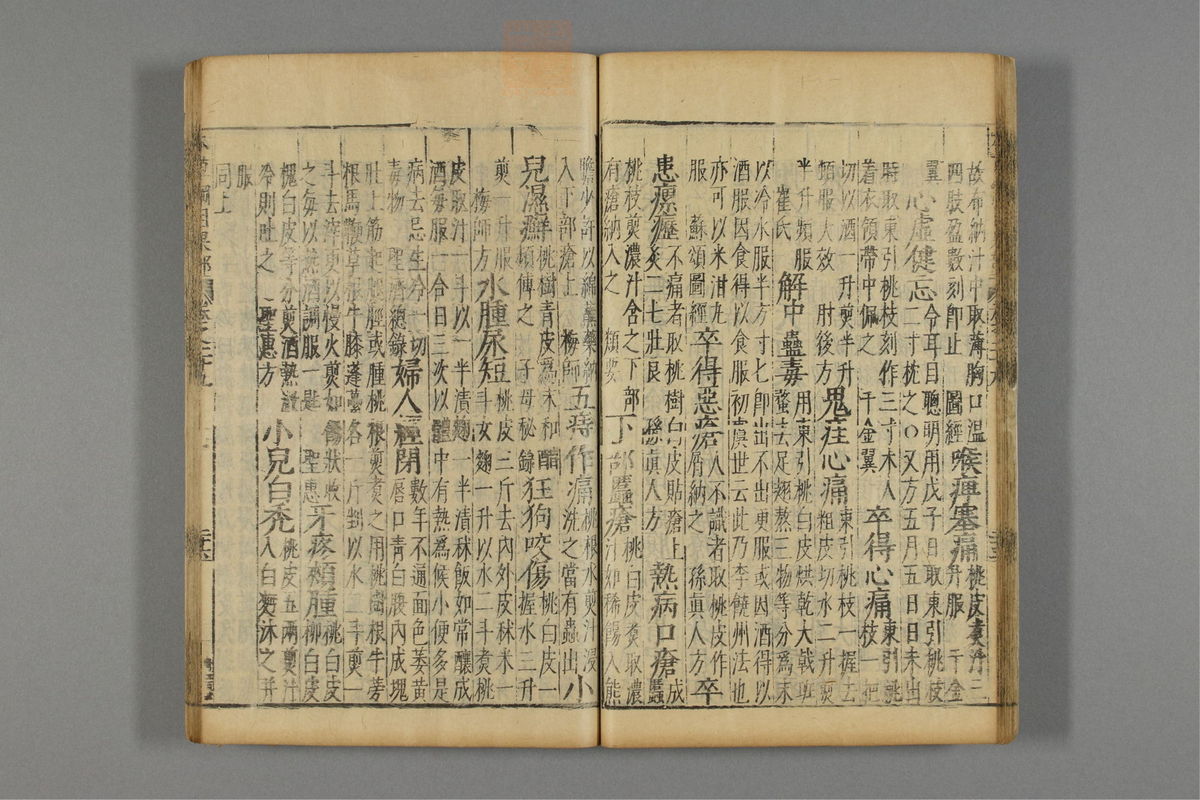 故布納汁中取薄胸口溫
四肢盈數刻即止 圖經
喉痺塞痛
桃皮煮汁三
升服 千金
翼
心虛健忘
令耳目聰明用戊子日取東引桃枝
二寸枕之○又方五月五日日未出
時取東引桃枝刻作三寸木人
着衣領帶中佩之 千金翼
卒得心痛
東引桃
枝一把
切以酒一升煎半升
頓服大效 肘後方
鬼疰心痛
東引桃枝一握去
粗皮切水二升煎
半升頻服
崔氏
解中蠱毒
用東引桃白皮烘乾大戟斑
蝥去足翅熬三物等分為末
以冷水服半方寸匕即出不出更服或因酒得以
酒服因食得以食服初虞世云此乃李饒州法也
亦可以米泔丸
服 蘇頌圖經
卒得惡瘡
人不識者取桃皮作
屑納之 孫真人方
卒
患瘰癧
不痛者取桃樹白皮貼瘡上
灸二七壯良 孫真人方
熱病口瘡
成
䘌
桃枝煎濃汁含之下部
有瘡納入之 類要
下部䘌瘡
桃白皮煮取濃
汁如稀餳入熊
膽少許以綿蘸藥納
入下部瘡上 梅師
五痔作痛
桃根水煎汁浸
洗之當有蟲出
小
兒濕癬
桃樹青皮為末和醋
頻傅之 子母秘錄
狂狗咬傷
桃白皮一
握水三升
煎一升服
梅師方
水腫尿短
桃皮三斤去內外皮秫米一
斗女麴一升以水二斗煮桃
皮取汁一斗以一半漬麴一半漬秫飯如常釀成
酒每服一合日三次以體中有熱為候小便多是
病去忌生冷一切
毒物 聖濟總錄
婦人經閉
數年不通面色萎黃
唇口青白腰內成塊
肚上筋起腿脛或腫桃根煎煮之用桃樹根牛蒡
根馬鞭草根牛膝蓬蘽各一斤剉以水三斗煎一
斗去滓更以慢火煎如餳狀收
之每以熱酒調服一匙 聖惠
牙疼頰腫
桃白皮
柳白皮
槐白皮等分煎酒熱漱
冷則吐之 聖惠方
小兒白禿
桃皮五兩煎汁
入白麪沐之并
服
同上